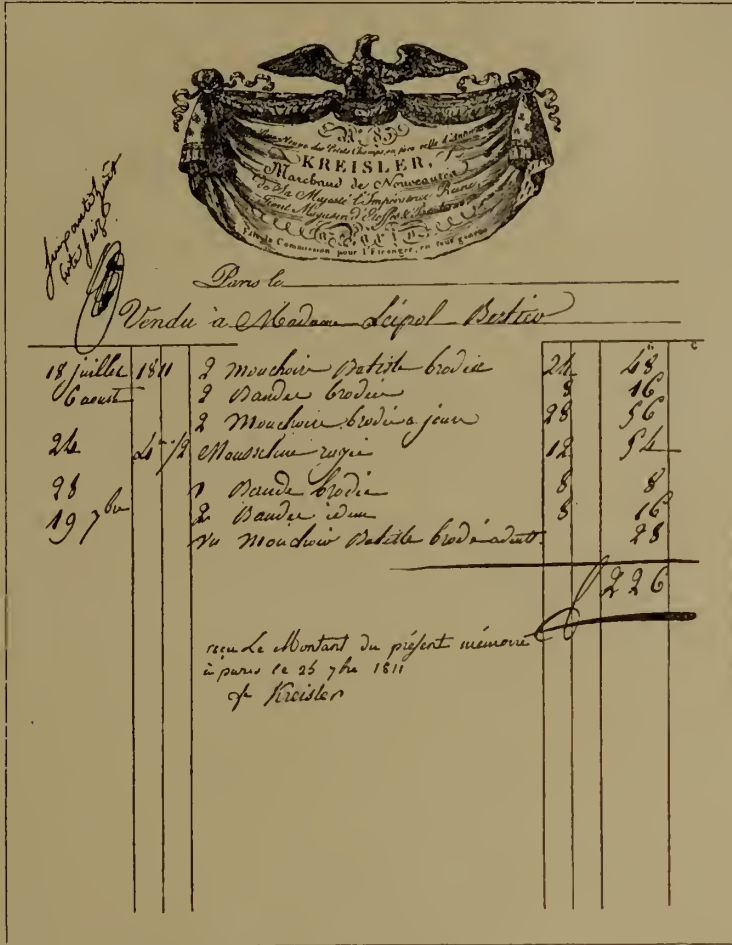 No. 85
Rue Neuve des Petits Champs, en face celle d'Antin
KREISLER,
Marchand de Nouveautés
de Sa Majesté l'Impératrice Reine,
Tient Magasin d'Etoffes &
à Paris
Commission pour l'Etranger, en tout genre
Paris le
Vendu à Madame Leipol
18 juillet 1811 2 Mouchoir Batiste brodée 24 48
6 aoust 2 Bandes brodée 8 16
2 Mouchoir brodé a jour 28 56
24 4 1/2 Mousseline 12 54
28 1 Bande brodée 8 8
19 7bre 2 Bandes idem 8 16
un Mouchoir Batiste brodé 28
226
reçu Le Montant du présent mémoire
à paris ce 25 7bre 1811
Kreisler